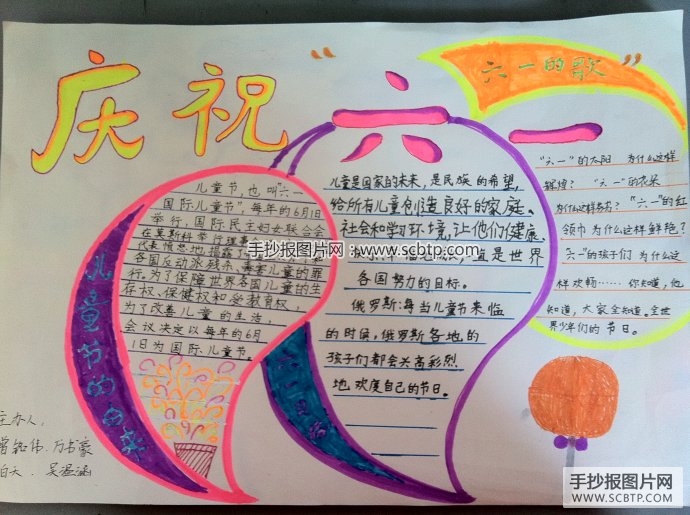 庆祝“六一”
儿童节,也叫“六一
国际儿童节”,每年的6月1日
举行,国际民主妇女联合会
在莫斯科举行理事
各国反动派残杀、毒害儿童的罪
行。为了保障世界各国儿童的生
存权、保健权和受教育权,
为了改善儿童的生活,
会议决定以每年的6月
1日为国际儿童节。
儿童节的由来
儿童是国家的未来,是民族的希望,
给所有儿童创造良好的家庭、
社会和学习环境,让他们健康、
直是世界
各国努力的目标。
俄罗斯:每当儿童节来临
的时候,俄罗斯各地的
孩子们都会兴高彩烈
地欢度自己的节日。
六一的歌
“六一”的太阳 为什么这样
辉煌? “六一”的花朵
为什么这样芬芳? “六一”的红
领巾 为什么这样鲜艳?
“六一”的孩子们 为什么这
样欢畅……你知道,他
知道,大家全知道。全世
界少年们的节日。
主办人:
手抄报图片网:www.scbtp.com
手抄报图片网
WWW.SCBTP.COM